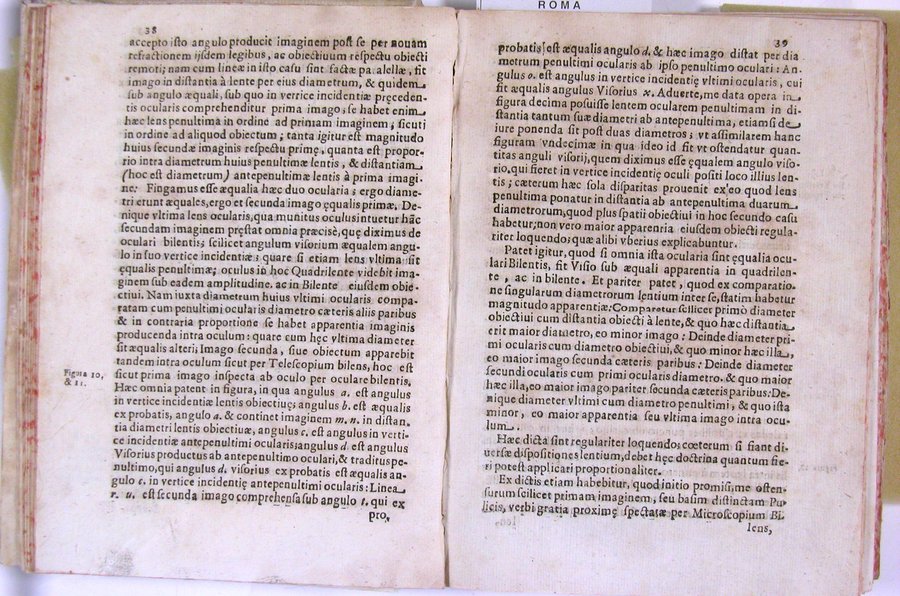 ROMA
38
accepto isto angulo producit imaginem post se per nouam
refractionem ijsdem legibus, ac obiectiuum respectu obiecti
remoti; nam cum lineæ in isto casu sint factæ paralellæ, fit
imago in distantia à lente per eius diametrum, & quidem
sub angulo æquali, sub quo in vertice incidentiæ præceden-
tis ocularis comprehenditur prima imago; se habet enim
hæc lens penultima in ordine ad primam imaginem; sicuti
in ordine ad aliquod obiectum; tanta igitur est magnitudo
huius secundæ imaginis respectu primę, quanta est propor-
rio intra diametrum huius penultimæ lentis, & distantiam
(hoc est diametrum) antepenultimæ lentis à prima imagi-
ne: Fingamus esse æqualia hæc duo ocularia; ergo diame-
tri erunt æquales, ergo et secunda imago ęqualis primæ, De-
nique vltima lens ocularis, qua munitus oculus intuetur hãc
secundam imaginem pręstat omnia præcisè, quę diximus de
oculari bilentis; scilicet angulum visorium æqualem angu-
lo in suo vertice incidentiæ; quare si etiam lens vltima sit
ęqualis penultimæ; oculus in hoc Quadrilente videbit ima-
ginem sub eadem amplitudine. ac in Bilente eiusdem obie-
ctiui. Nam iuxta diametrum huius vltimi ocularis compa-
ratam cum penultimi ocularis diametro cæteris aliis paribus
& in contraria proportione se habet apparentia imaginis
producenda intra oculum: quare cum hęc vltima diameter
sit æqualis alteri; Imago secunda, siue obiectum apparebit
tandem intra oculum sicut per Telescopium bilens, hoc est
sicut prima imago inspecta ab oculo per oculare bilentis.
Figura 10,
& 11.
Hæc omnia patent in figura, in qua angulus a. est angulus
in vertice incidentiæ lentis obiectiuę; angulus b. est æqualis
ex probatis, angulo a. & continet imaginem m. n. in distan-
tia diametri lentis obiectiuæ, angulus c. est angulus in verti-
ce incidentiæ antepenultimi ocularis; angulus d. est angulus
Visorius productus ab antepenultimo oculari, & traditus pe-
nultimo, qui angulus d. visorius ex probatis est æqualis an-
gulo c. in vertice incidentię antepenultimi ocularis: Linea
r. u. est secunda imago comprehensa sub angulo t. qui ex
pro,
39
probatis est æqualis angulo d. & hæc imago distat per dia
metrum penultimi ocularis ab ipso penultimo oculari: An-
gulus o. est angulus in vertice incidentię vltimi ocularis, cui
fit æqualis angulus Visorius x. Aduerte, me data opera in
figura decima posuisse lentem ocularem penultimam in di-
stantia tantum suæ diametri ab antepenultima, etiamsi de
iure ponenda sit post duas diametros; vt assimilarem hanc
figuram vndecimæ in qua ideo id fit vt ostendatur quan-
titas anguli visorij, quem diximus esse ęqualem angulo viso-
rio, qui fieret in vertice incidentię oculi positi loco illius len-
tis; cæterum hæc sola disparitas prouenit ex eo quod lens
penultima ponatur in distantia ab antepenultima duarum
diametrorum, quod plus spatii obiectiui in hoc secundo casu
habetur; non vero maior apparenria eiusdem obiecti regula-
riter loquendo; quæ alibi vberius explicabuntur.
Patet igitur, quod si omnia ista ocularia sint ęqualia ocu-
lari Bilentis, fit Visio sub æquali apparentia in quadrilen-
te, ac in bilente. Et pariter patet, quod ex comparatio-
ne singularum diametrorum lentium inter se, statim habetur
magnitudo apparentiæ: Comparetur scilicet primò diameter
obiectiui cum distantia obiecti à lente, & quo hæc distantia
erit maior diametro, eo minor imago: Deinde diameter pri-
mi ocularis cum diametro obiectiui, & quo minor hæc illa,
eo maior imago secunda cæteris paribus: Deinde diameter
secundi ocularis cum primi ocularis diametro. & quo maior
hæc illa, eo maior imago pariter secunda cæteris paribus: De-
nique diameter vltimi cum diametro penultimi, & quo ista
minor, eo maior apparentia seu vltima imago intra ocu-
lum.
Hæc dicta sint regulariter loquendo; cœterum si fiant di-
uersæ dispositiones lentium, debet hęc doctrina quantum fie-
ri potest applicari proportionaliter.
Ex dictis etiam habebitur, quod initio promisi, me osten-
surum scilicet primam imaginem, seu basim distinctam Pu-
licis, verbi gratia proximę spectatæ per Microscopium Bi-
lens,